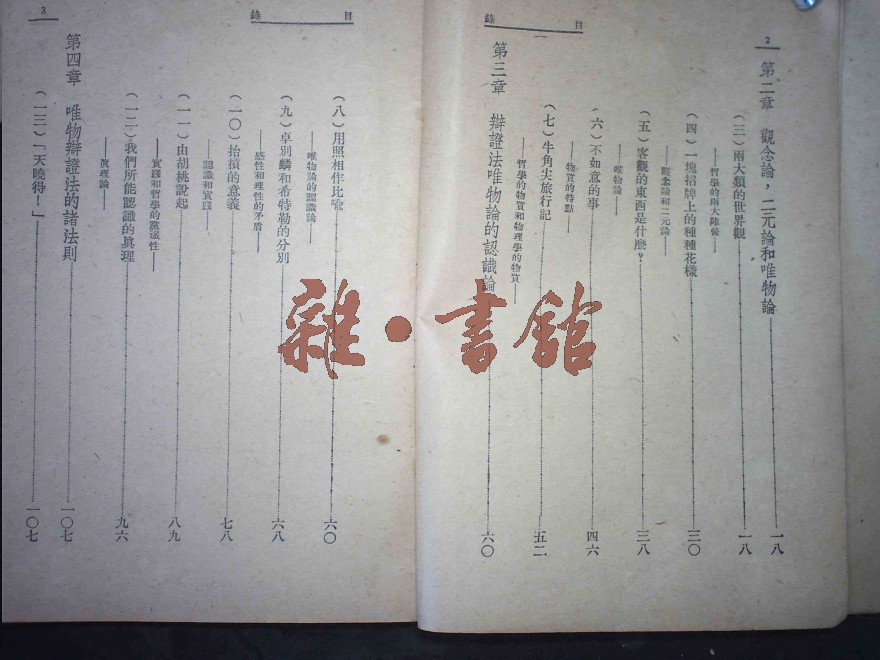 2
目 錄
第二章 觀念論，二元論和唯物論 一八
（三）兩大類的世界觀 一八
——哲學的兩大陣營——
（四）一塊招牌上的種種花樣 三〇
——觀念論和二元論——
（五）客觀的東西是什麼？ 三八
——唯物論——
（六）不如意的事 四六
——物質的特點——
（七）牛角尖旅行記 五二
——哲學的物質和物理學的物質——
第三章 辯證法唯物論的認識論 六〇
目 錄
3
（八）用照相作比喻 六〇
——唯物論的認識論——
（九）卓別麟和希特勒的分別 六八
——感性和理性的矛盾——
（一〇）抬摃的意義 七八
——認識和實踐——
（一一）由胡桃說起 八九
——實踐和哲學的黨派性——
（一二）我們所能認識的眞理 九六
——眞理論——
第四章 唯物辯證法的諸法則 一〇七
（一三）「天曉得！」 一〇七
雜·書舘